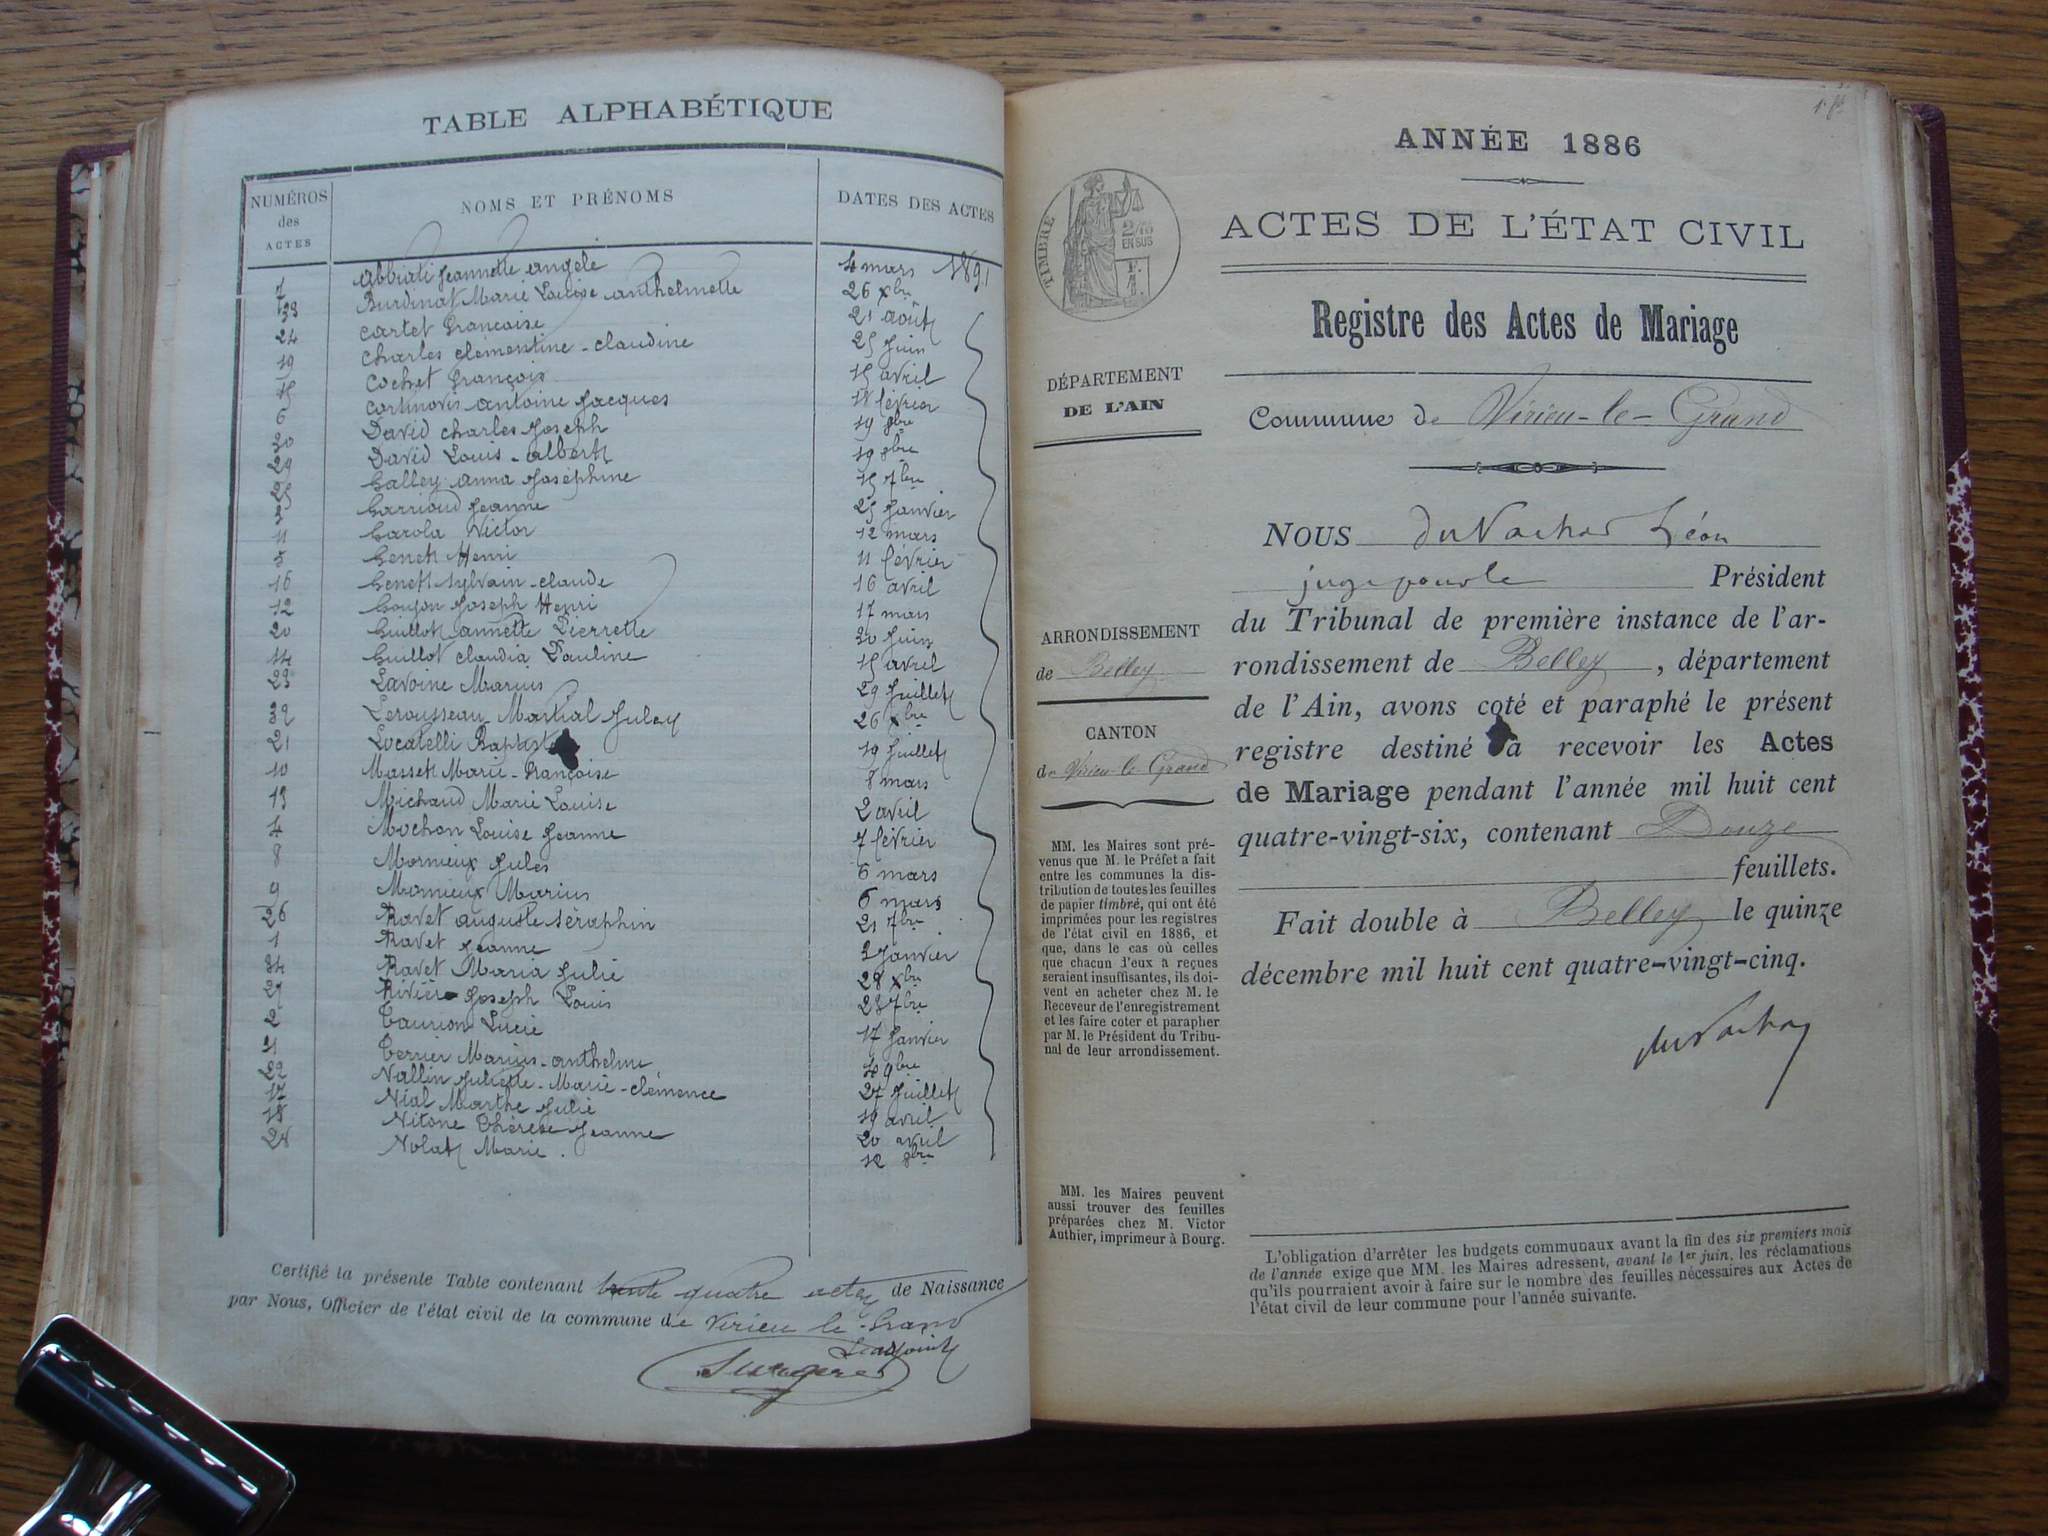 TABLE ALPHABÉTIQUE
NUMÉROS des ACTES
NOMS ET PRÉNOMS
DATES DES ACTES
7 Abbiati Jeannette Angèle 4 mars 1891
33 Burdinat Marie Louise Anthelmette 26 xbre
24 Cartet Françoise 21 août
19 Charles Clémentine - Claudine 25 juin
15 Cochet François 15 avril
6 Cortinovis Antoine Jacques février
30 David Charles Joseph 19 8bre
29 David Louis - Albert 19 8bre
25 Galley Anna Joséphine 15 7bre
3 Garrioud Jeanne 25 Janvier
11 Garola Victor 12 mars
5 Genet Henri 11 février
16 Genet Sylvain - Claude 16 avril
12 Goujon Joseph Henri 17 mars
20 Guillot Annette Pierrette 30 Juin
14 Guillot Claudia Pauline 15 avril
23 Lavoine Marius 29 Juillet
32 Lerousseau Martial Jules 26 xbre
21 Locatelli Baptiste 19 Juillet
10 Masset Marie - Françoise 8 mars
13 Michaud Marie Louise 2 avril
4 Mochon Louise Jeanne 7 février
8 Mornieux Jules 6 mars
9 Mornieux Marius 6 mars
26 Ravet Auguste Séraphin 21 7bre
1 Ravet Jeanne 2 Janvier
34 Ravet Maria Julie 28 xbre
27 Rivière Joseph Louis 23 7bre
2 Taurion Lucie 17 Janvier
Terrier Marius - Anthelme 9bre
22 Vallin Juliette - Marie - Clémence 27 Juillet
17 Vial Marthe Julie 19 avril
18 Vitone Thérèse Jeanne 20 avril
28 Volat Marie . 12 8bre
Certifié la présente Table contenant trente quatre actes de Naissance
par Nous, Officier de l'état civil de la commune de Virieu le Grand
L'adjoint
1er ft
ANNÉE 1886
TIMBRE
2/10 EN SUS
ACTES DE L'ÉTAT CIVIL
Registre des Actes de Mariage
DÉPARTEMENT
DE L'AIN
Commune de Virieu-le-Grand
NOUS du Vachat Léon
juge pour le Président
du Tribunal de première instance de l'ar-
rondissement de Belley, département
de l'Ain, avons coté et paraphé le présent
registre destiné à recevoir les Actes
de Mariage pendant l'année mil huit cent
quatre-vingt-six, contenant Douze
feuillets.
Fait double à Belley le quinze
décembre mil huit cent quatre-vingt-cinq.
du Vachat
ARRONDISSEMENT
de Belley
CANTON
de Virieu-le-Grand
MM. les Maires sont pré-
venus que M. le Préfet a fait
entre les communes la dis-
tribution de toutes les feuilles
de papier timbré, qui ont été
imprimées pour les registres
de l'état civil en 1886, et
que, dans le cas où celles
que chacun d'eux a reçues
seraient insuffisantes, ils doi-
vent en acheter chez M. le
Receveur de l'enregistrement
et les faire coter et parapher
par M. le Président du Tribu-
nal de leur arrondissement.
MM. les Maires peuvent
aussi trouver des feuilles
préparées chez M. Victor
Authier, imprimeur à Bourg.
L'obligation d'arrêter les budgets communaux avant la fin des six premiers mois
de l'année exige que MM. les Maires adressent, avant le 1er juin, les réclamations
qu'ils pourraient avoir à faire sur le nombre des feuilles nécessaires aux Actes de
l'état civil de leur commune pour l'année suivante.